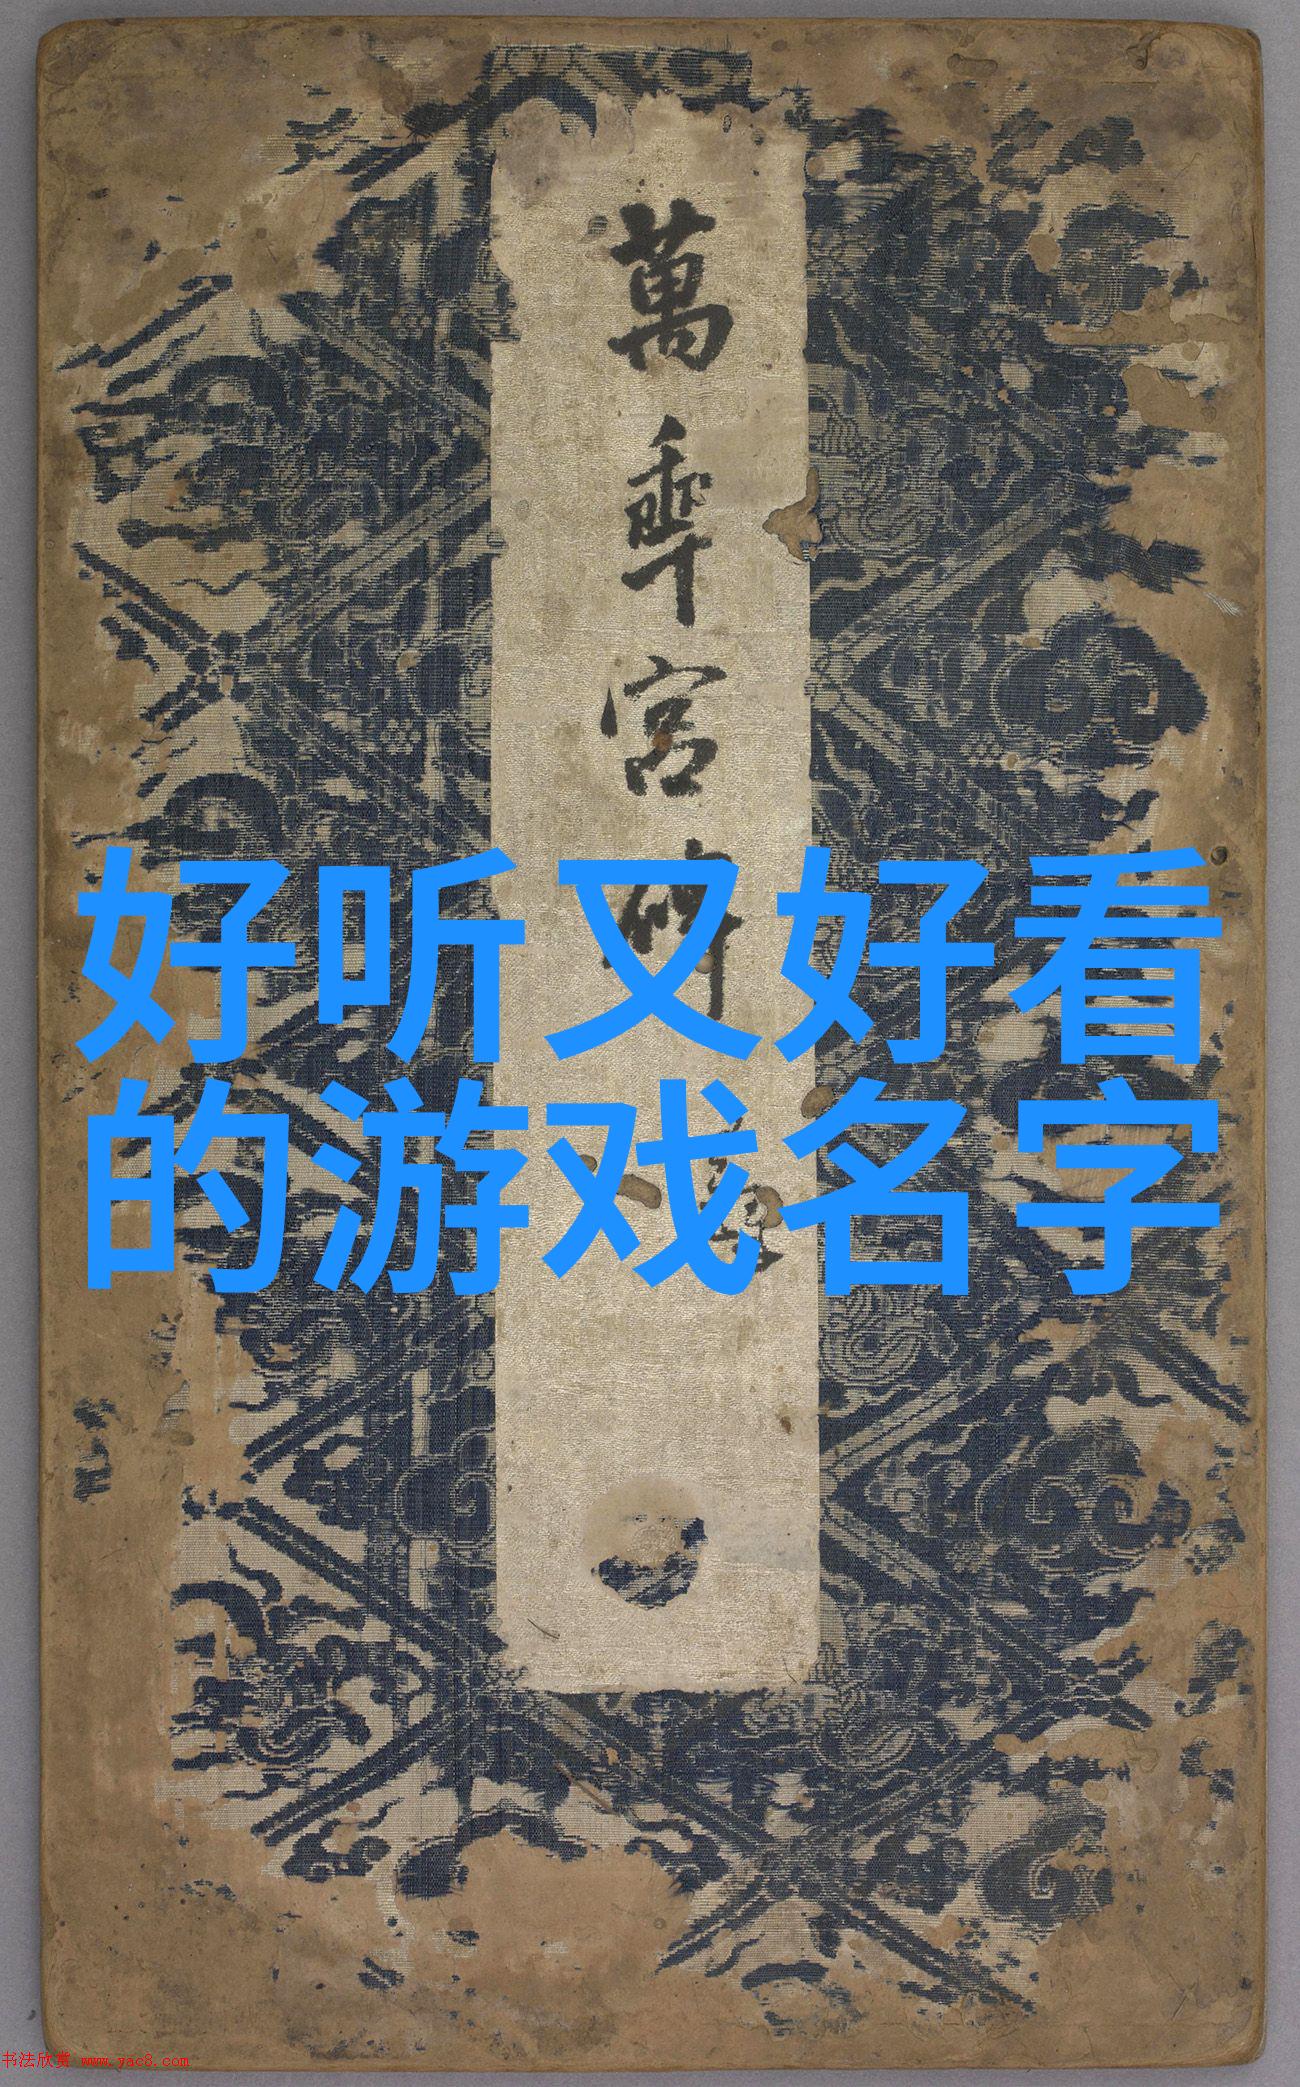 萬年宫碑
好听又好看
的游戏名字
书法欣赏 www.yac8.com